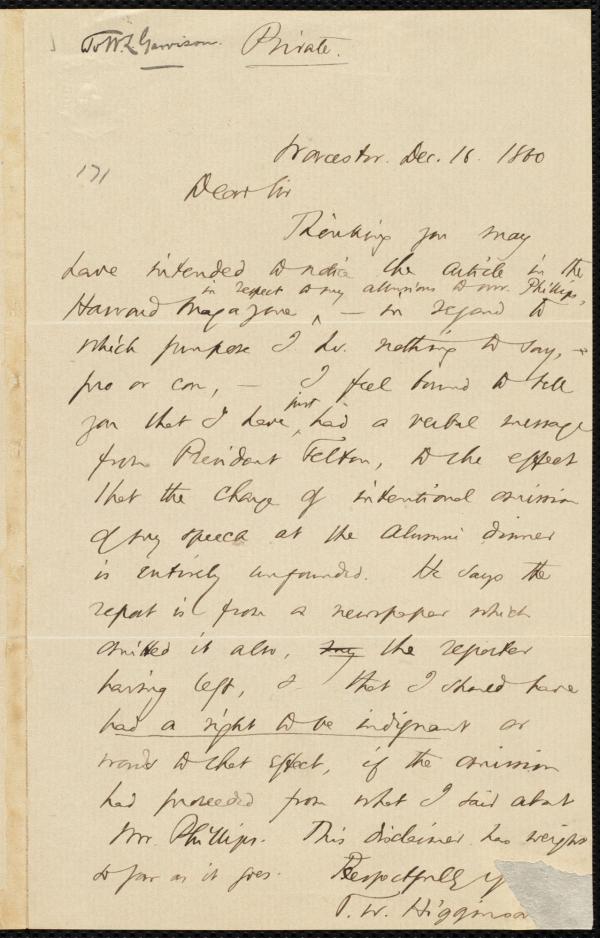 To W. L. Garrison. Private.
171
Worcester. Dec. 16. 1860
Dear Sir
Thinking you may
have intended to notice the article in the
in respect to my allusions to Mr. Phillips,
Harvard Magazine, — in regard to
which purpose I hv. nothing to say, –
pro or con, — I feel bound to tell
just
you that I have had a verbal message
from President Felton, to the effect
that the charge of intentional omission
of my speech at the Alumni dinner
is entirely unfounded. He says the
report is from a newspaper which
omitted it also, the reporter
having left, & that I should have
had a right to be indignant or
words to that effect, if the omission
had proceeded from what I said about
Mr. Phillips. This disclaimer has weight
so far as it goes. Respectfully y
T. W. Higginson